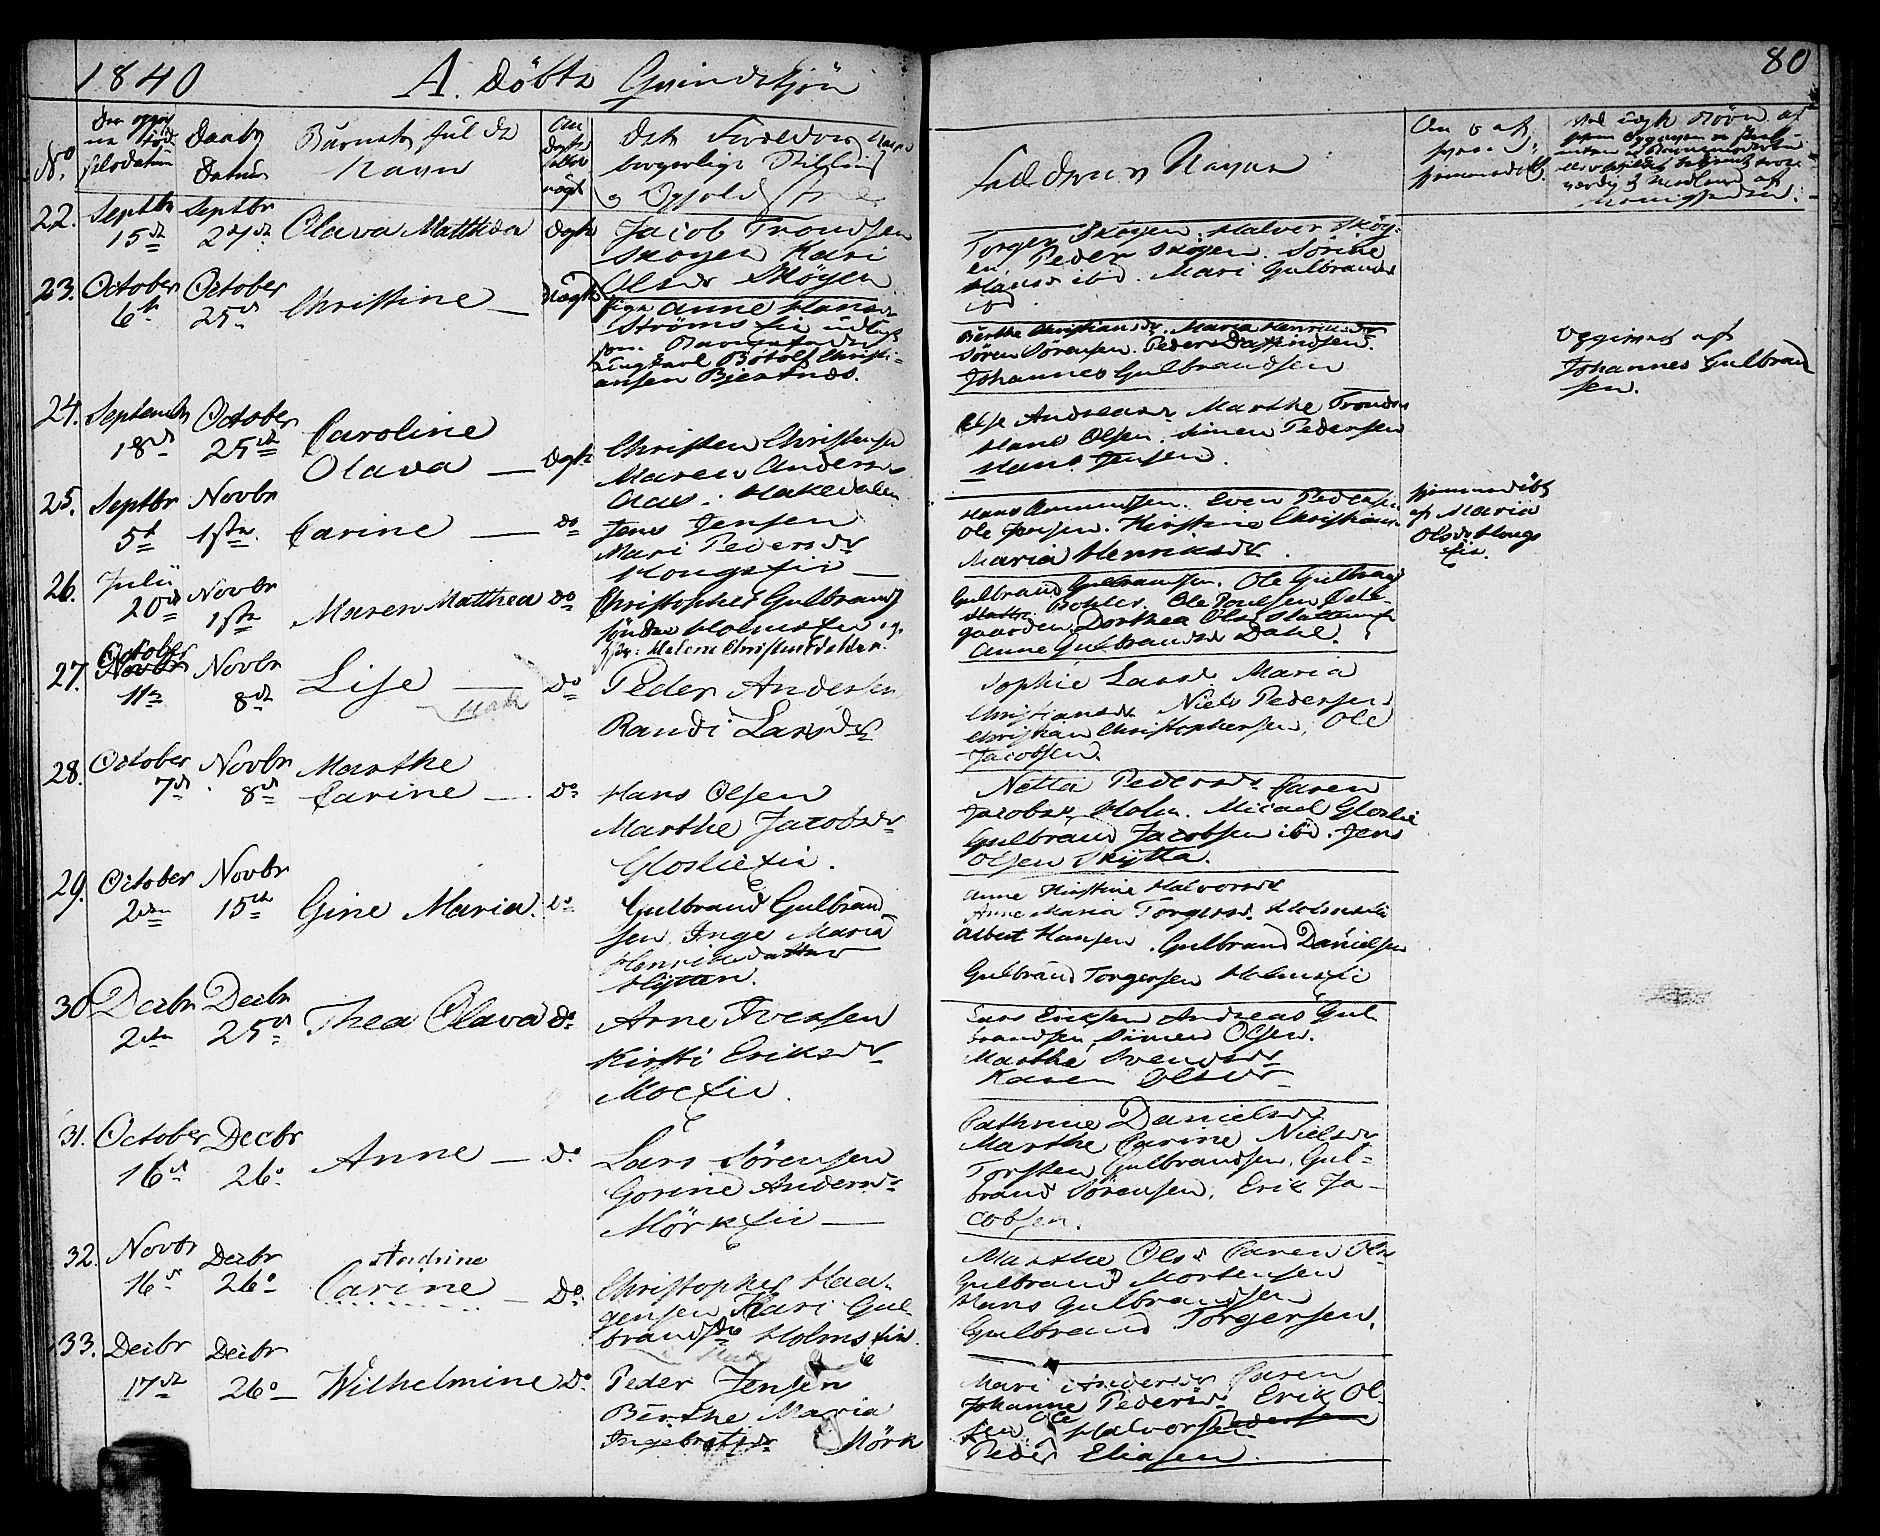 1840 A. Döbte Qvindekjön 80
No.
Daabs Datum
Barnets fulde Navn
Faddernes Navne
22. Septbr 15de Septbr 27de Olava Matthea Ægte Jacob Trondsen
Skøyen Kari
Olsdr Skøyen
Torger Skøyen. Halvor Skøy-
en, Peder Skøyen. Sörine
Hansd ibid. Mari Gulbrandsd
ibd
23. October 6te October 25de Christine — Uægte
Pige Anne Hansdr
Ströms Eie
Botolf Christi-
ansen Bjertnæs.
Berthe Christiansdr. Maria Henriksdr
Sören Sörensen. Peder
Johannes Gulbrandsen
Opgivet af
Johannes Gulbrand
sen.
24. Septembr 18de October 25de Caroline
Olava — Ægte
Christen Christensen
Maren Andersd
Aas. Hakedalen
Else Andreasd Marthe Trondsd
Hans Olsen. Simen Pedersen
Hans Jensen.
25. Septbr 5te Novbr 1ste Carine — do
Jens Jensen
Mari Pedersdr
Hougs Eie —
Hans Amundsen. Even Pedersen
Ole Jensen. Kirstine Christians
Maria Henriksdr.
hjemmedöbt
af Maria
Olsdr Hougs
Eie.
26. Julii 20de Novbr 1ste Maren Matthea do
Christopher Gulbrands
sön Holms Eie og
Helene Christensdatter.
Gulbrand Gulbrandsen. Ole Gulbrands
Böhler. Ole Poulsen Dale
gaarden Dorthea Olsd
Anne Gulbrandsd Dahl.
27. October
Novbr
11te Novbr 8de Lise — do
Peder Andersen
Randi Larsdr
Sophie Larsd. Maria
Christiansdr Niels Pedersen
Christian Christophersen, Ole
Jacobsen.
28. October 7de Novbr 8de Marthe
Carine — do
Hans Olsen
Marthe Jacobsdr
Glorlie Eie.
Netta Pedersdr Caren
Jacobsd Holm. Micael Glorlie
Gulbrand Jacobsen ibd. Jens
Olsen Skytta.
29. October 2den Novbr 15de Gine Maria. do
Gulbrand Gulbrand
sen Inge Maria
Henriksdatter
Hytten.
Anne Kirstine Halvorsdr
Anne Maria Torgersd. Holmseie
Albert Hansen. Gulbrand Danielsen
Gulbrand Torgersen Holms Eie
30 Decbr 2den Decbr 25de Thea Olava do
Arne Iversen
Kirsti Eriksdr
Moe Eie.
Lars Eriksen Andreas Gul
brandsen, Simen Olsen.
Marthe Svendsdr
Karen Olsdr
31. October 16de Decbr 26o Anne — do
Lars Sörensen
Gorine Andersdr
Mörk Eie —
Cathrine Danielsdr
Marthe Carine Nielsdr
Torsten Gulbrandsen, Gul-
brand Sörensen, Erik Ja-
cobsen.
32. Novbr 16de Decbr 26o Andrine
Carine — do.
Christopher Haa-
gensen Kari Gul
brandsdr Holms Eie
Marthe Olsd Caren Ols
Gulbrand Mortensen
Hans Gulbrandsen
Gulbrand Torgersen.
33. Decbr 17de Decbr 26o — Wilhelmine do
Peder Jensen
Berthe Maria
Ingebretsdr Mörk
Mari Andersdr Caren
Johanne Pedersd. Erik Ol-
sen Ole Halvorsen Pedersen
Peder Eliasen